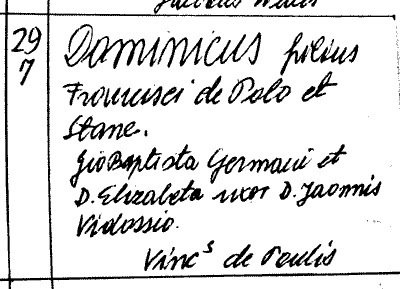 29
7
Dominicus filius
Francisci de Polo et
Stane.
Gio Baptista Germani et
D. Elizabeta uxor D. Joannis
Vidossio.
Vinc^s de Paulis